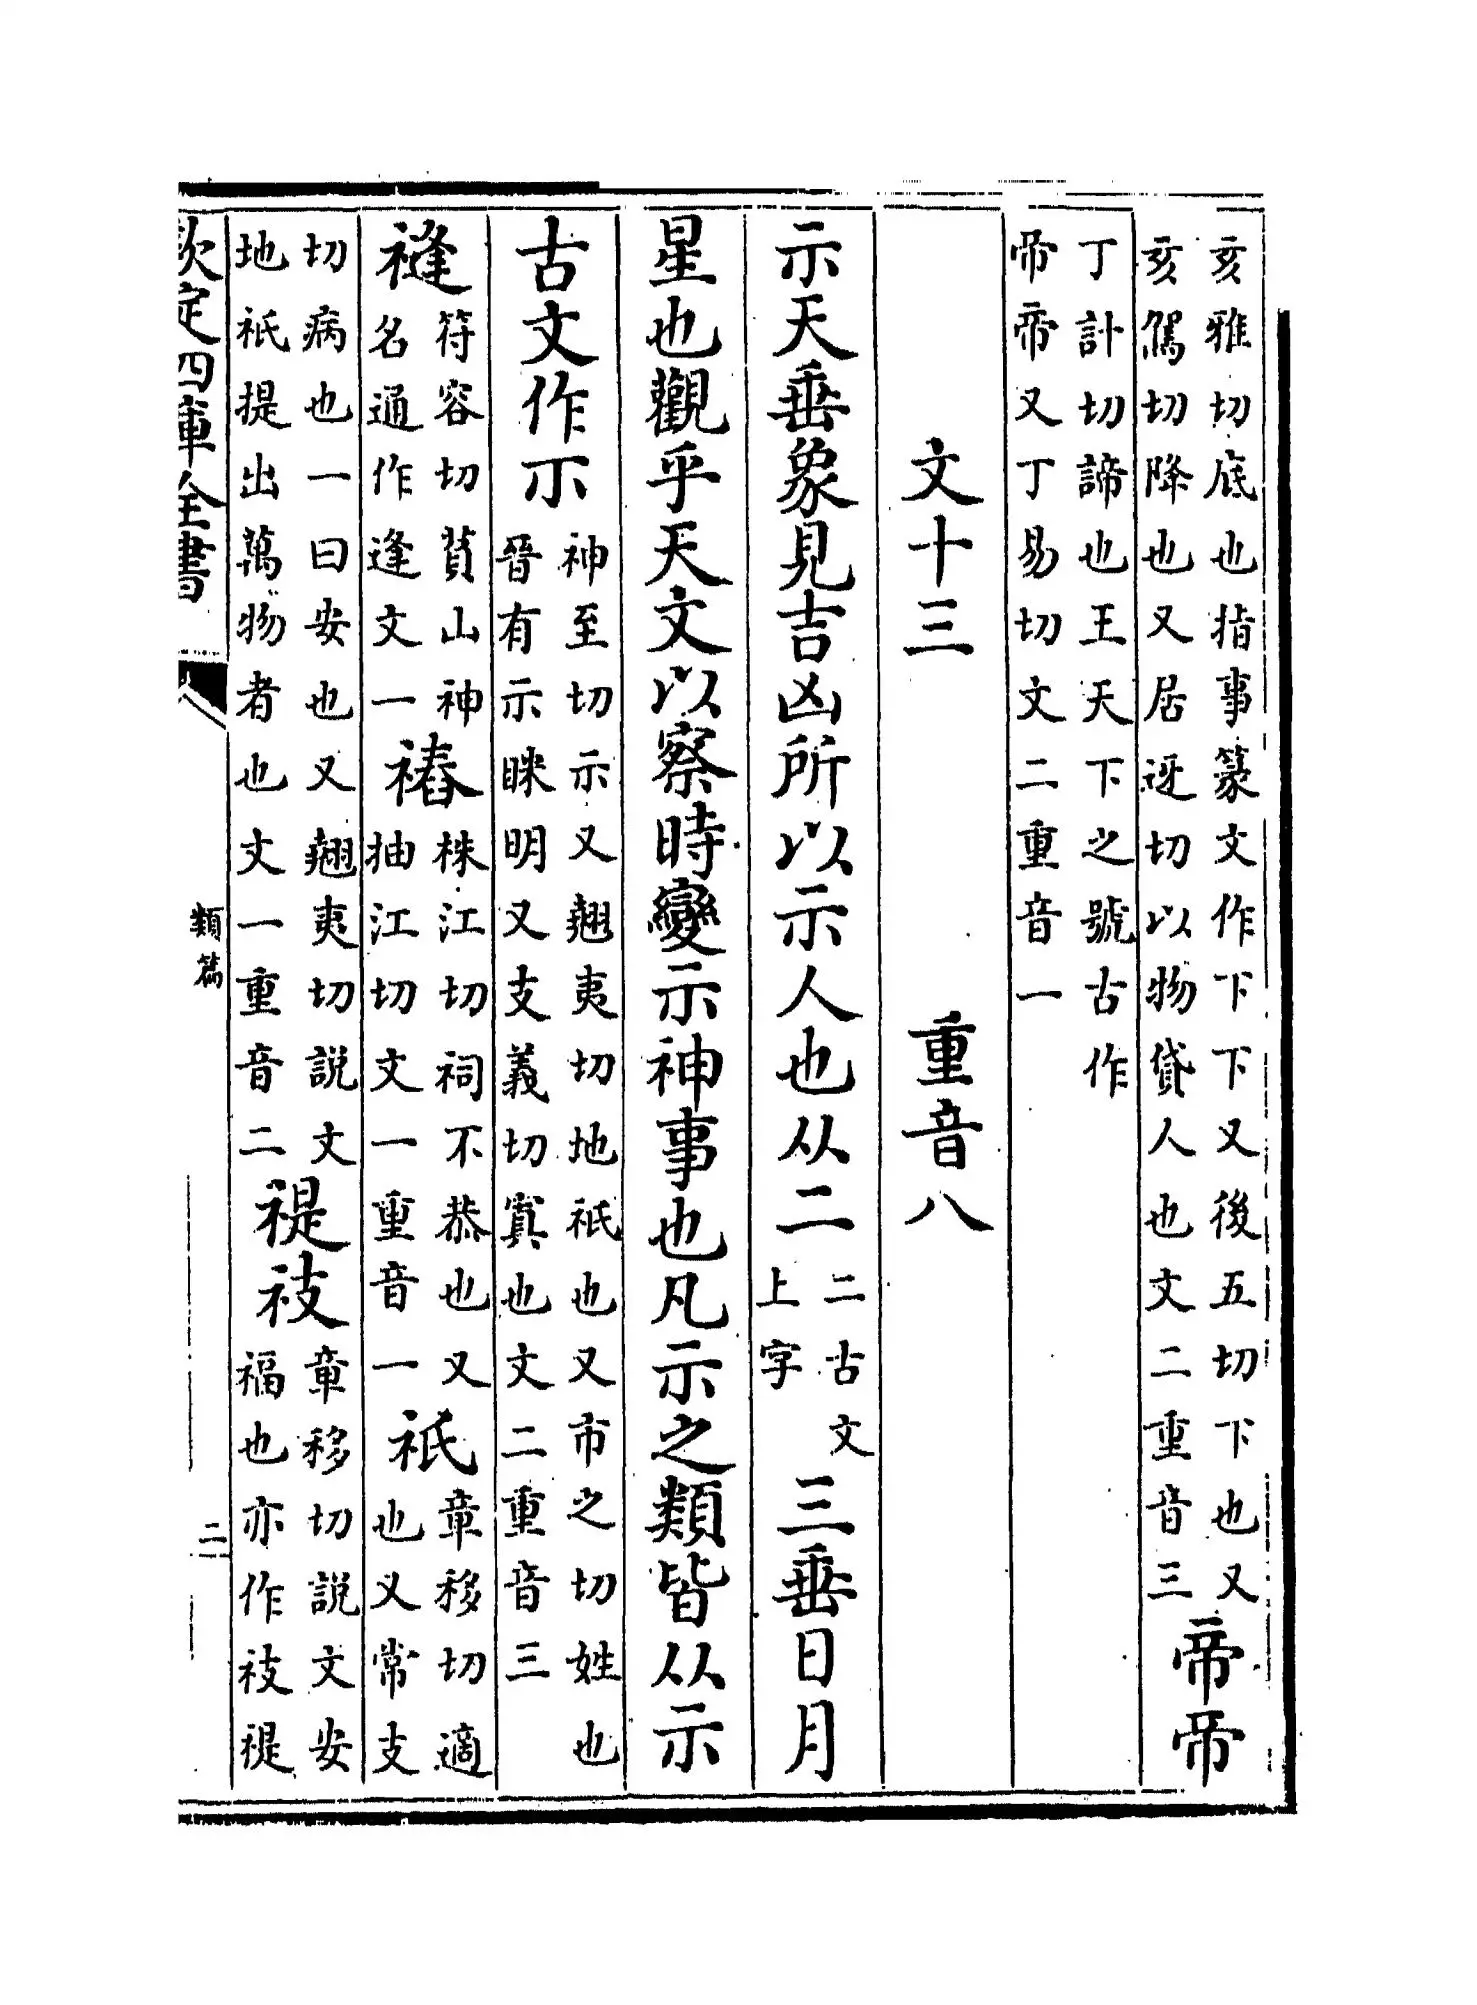 亥雅切底也指事篆文作下下又後五切下也又
亥駕切降也又居迓切以物貸人也文二重音三
帝帝
丁計切諦也王天下之號古作
帝帝又丁易切文二重音一
文十三　重音八
示天垂象見吉凶所以示人也从二
二古文
上字
三垂日月
星也觀乎天文以察時變示神事也凡示之類皆从示
古文作
神至切示又翹夷切地祇也又市之切姓也
晉有示眯明又支義切寘也文二重音三
符容切山神
名通作逢文一
株江切祠不恭也又
抽江切文一重音一
祇
章移切適
也又常支
切病也一曰安也又翹夷切説文
地祇提出萬物者也文一重音二
禔
章移切説文安
福也亦作禔
欽定四庫全書
類篇
二